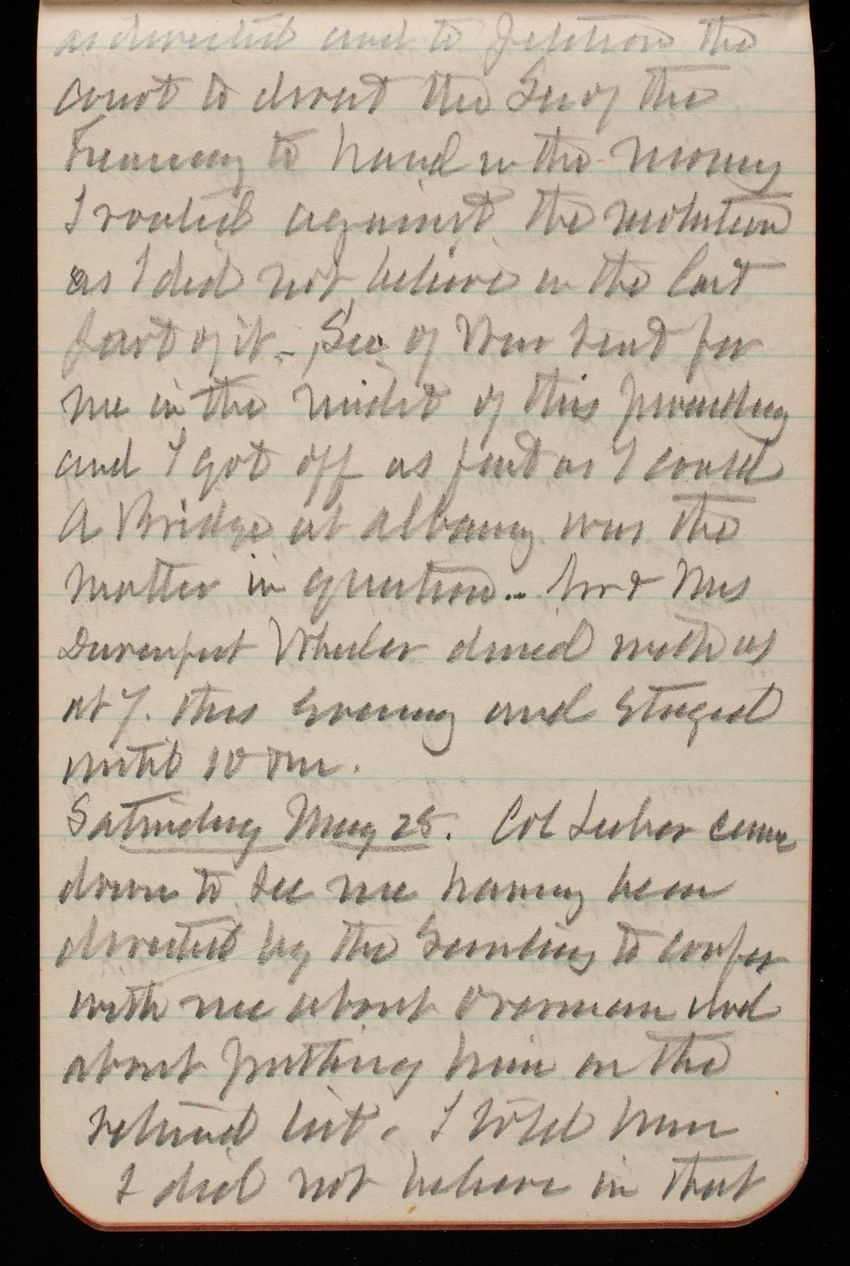 as directed and to petition the
court to direct the Sec of the
Treasury to hand in the money
I voted against the resolution
as I did not believe in the last
part of it -, Sec of War sent for
me in the midst of this proceeding
and I got off as fast as I could
A Bridge at Albany was the
matter in question.. Mr & Mrs
Davenport Wheeler dined with us
at 7. this evening and stayed
until 10 Pm.
Saturday May 28. Col came
down to see me having been
directed by the Secretary to confer
with me about Overman and
about putting him on the
retired list. I told him
I did not believe in that